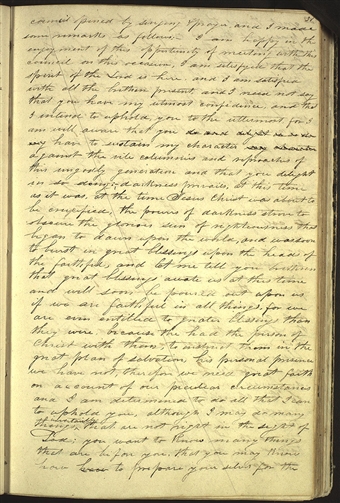 council opened by singing & prayer and I made
some remarks as follows I am happy in the
enjoyment of this opportunity of meeting with this
council on this occasion, I am satisfied that the
spirit of the Lord is here and I am satisfied
with all the brethren present, and I need not say
that you have my utmost confidence, and that
I intend to uphold, you to the uttermost for I
am well aware that you do and delight in so
have to sustain my character
against the vile calumnies and reproaches of
this ungodly generation and that you delight
in so doing, darkness prevails, at this time
as it was, at the time Jesus Christ was about to
be crucified, the powers of darkness strove to
obscure the glorious sun of righteousness that
began to dawn upon the world, and was soon
to burst in great blessings upon the heads of
the faithful, and let me tell you brethren
that great blessings await us at this time
and will soon be poured out upon us
if we are faithful in all things, for we
are even entitled to greater blessings than
they were, because the had the person of
Christ with them, to instruct them in the
great plan of salvation, his personal presence
we have not, therefore we need great faith
on account of our peculiar circumstances
and I am determined to do all that I can
to uphold you, although I may do many
things that are not right in the sight of
God; you want to know many things
that are before you, that you may know
how to prepare your selves for the